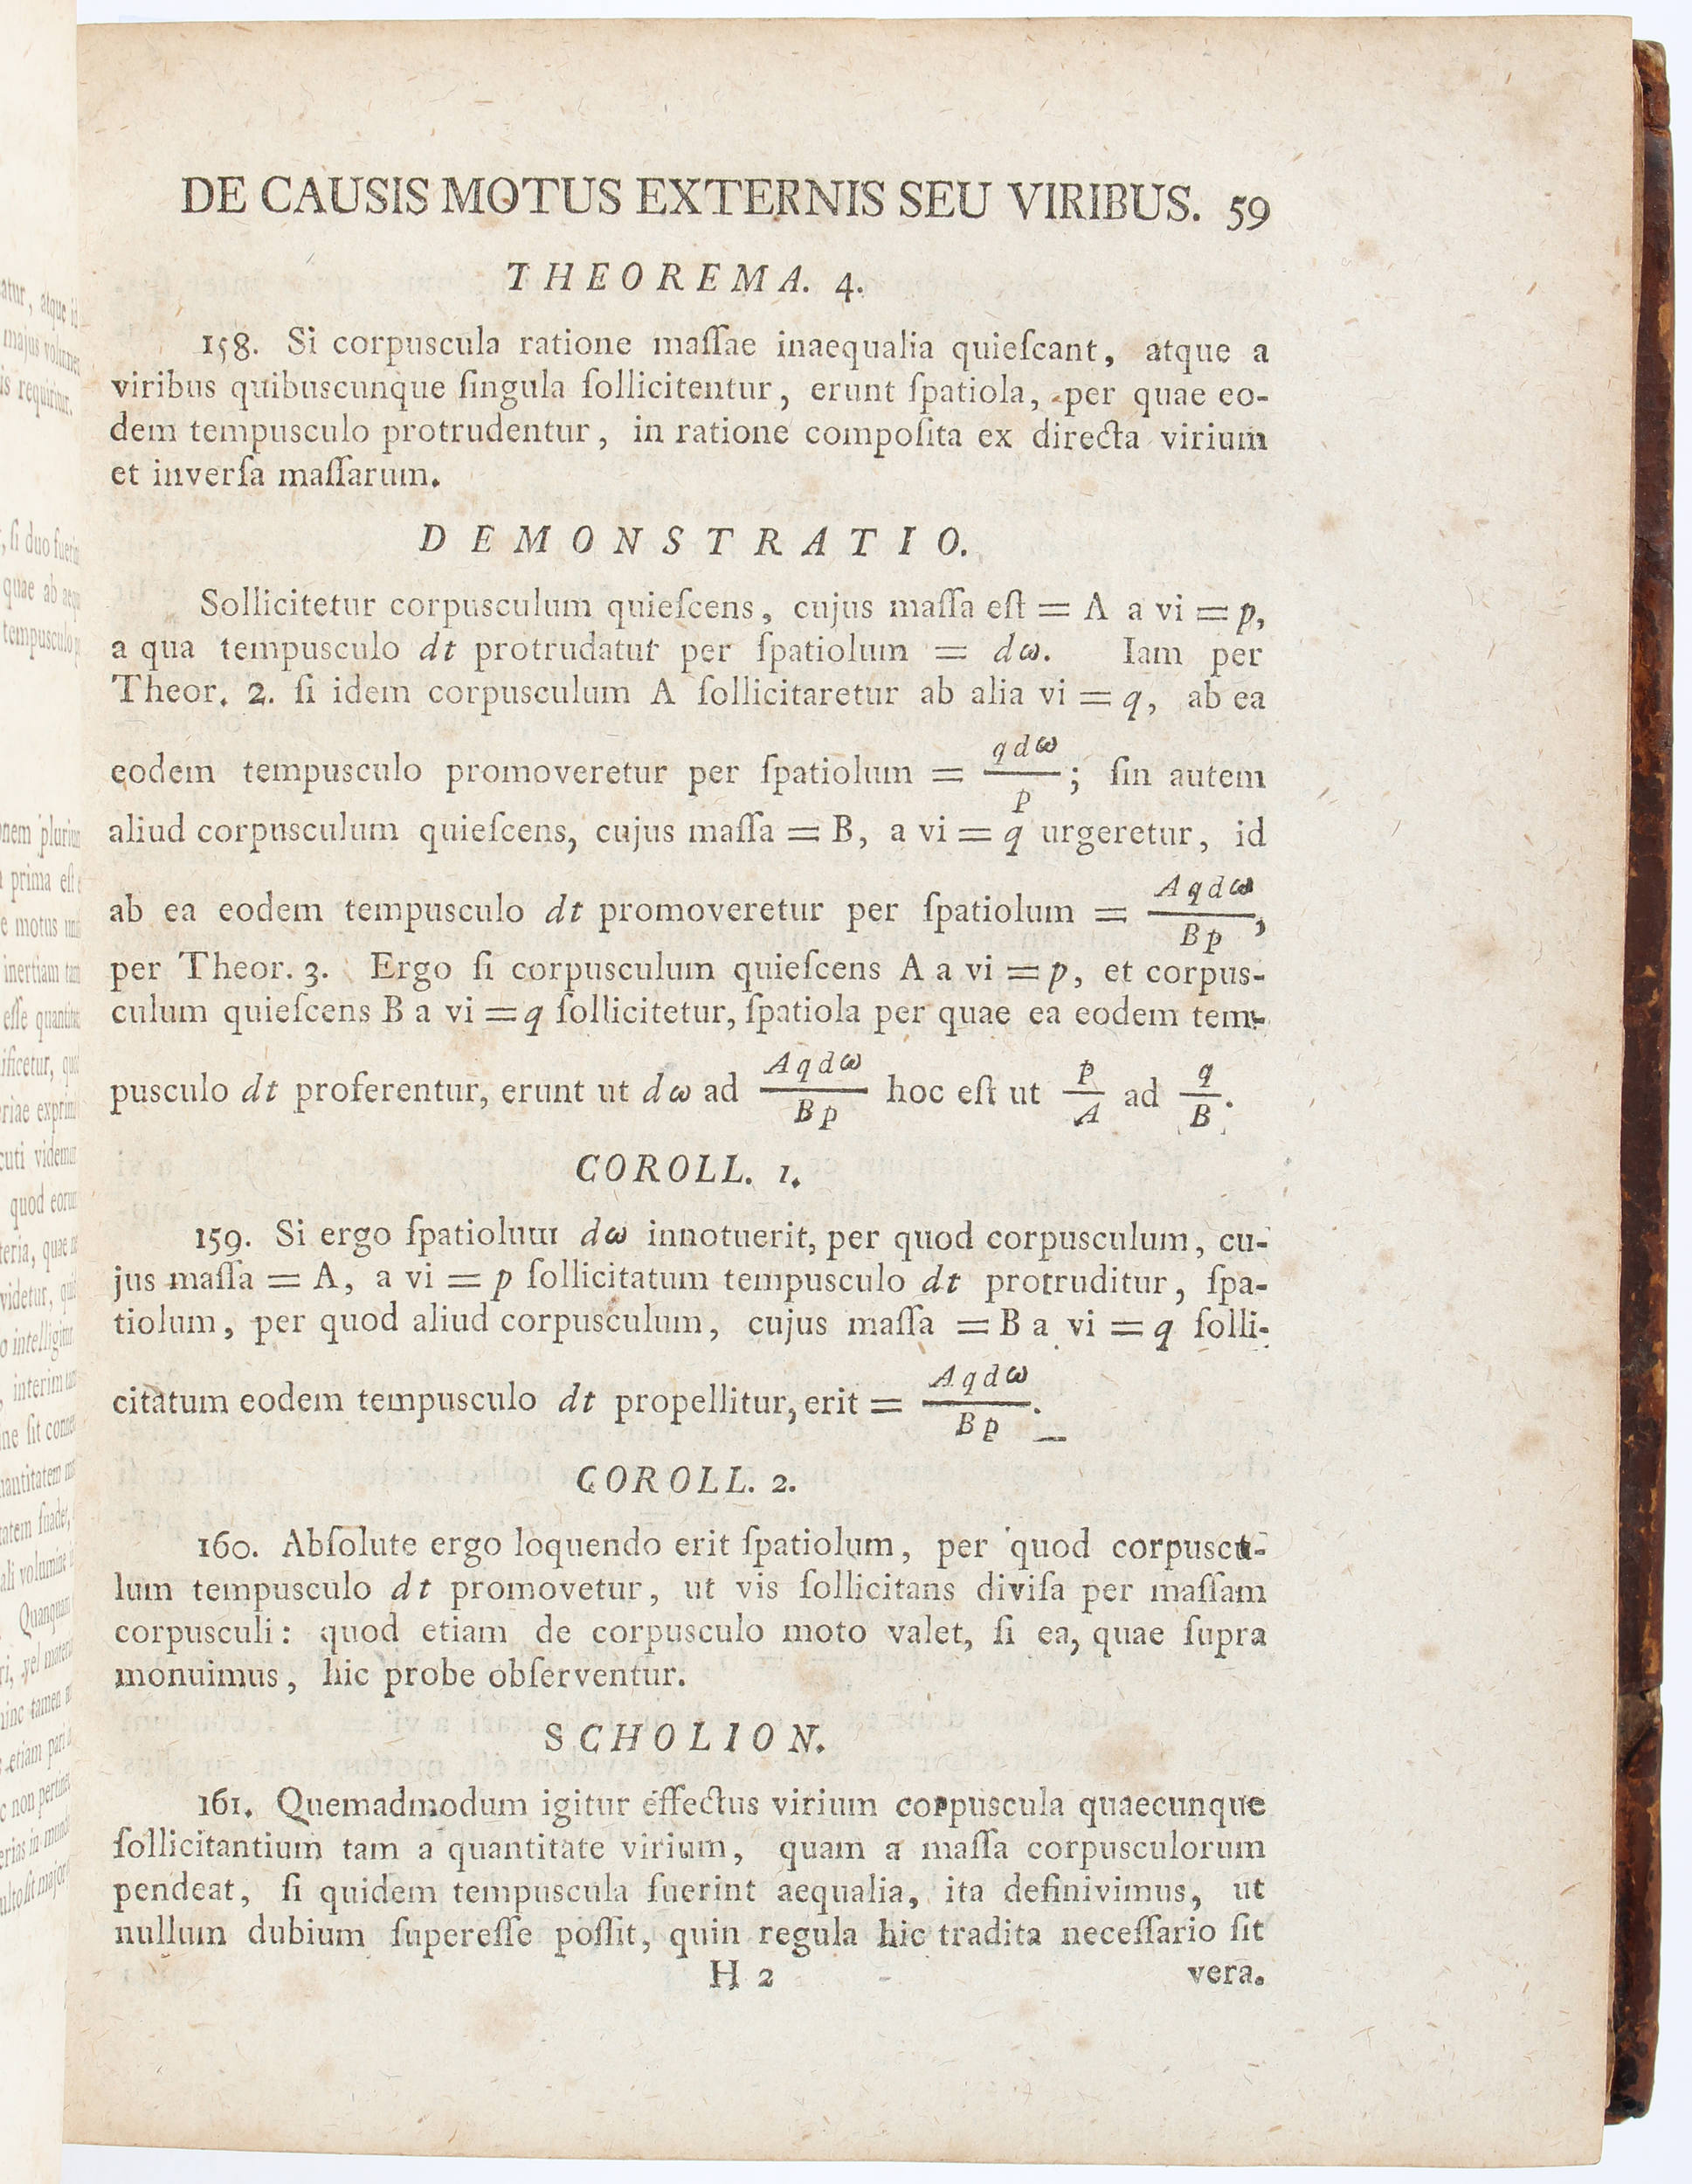 DE CAUSIS MOTUS EXTERNIS SEU VIRIBUS. 59
THEOREMA. 4.
158. Si corpuscula ratione maſſae inaequalia quieſcant, atque a
viribus quibuscunque ſingula ſollicitentur, erunt ſpatiola, per quae eo-
dem tempusculo protrudentur, in ratione compoſita ex directa virium
et inverſa maſſarum.
DEMONSTRATIO.
Sollicitetur corpusculum quieſcens, cujus maſſa eſt = A a vi = p,
a qua tempusculo dt protrudatur per ſpatiolum = dω. Iam per
Theor. 2. ſi idem corpusculum A ſollicitaretur ab alia vi = q, ab ea
eodem tempusculo promoveretur per ſpatiolum = qdω/p; ſin autem
aliud corpusculum quieſcens, cujus maſſa = B, a vi = q urgeretur, id
ab ea eodem tempusculo dt promoveretur per ſpatiolum = Aqdω/Bp,
per Theor. 3. Ergo ſi corpusculum quieſcens A a vi = p, et corpus-
culum quieſcens B a vi = q ſollicitetur, ſpatiola per quae ea eodem tem-
pusculo dt proferentur, erunt ut dω ad Aqdω/Bp hoc eſt ut p/A ad q/B.
COROLL. 1.
159. Si ergo ſpatiolum dω innotuerit, per quod corpusculum, cu-
jus maſſa = A, a vi = p ſollicitatum tempusculo dt protruditur, ſpa-
tiolum, per quod aliud corpusculum, cujus maſſa = B a vi = q ſolli-
citatum eodem tempusculo dt propellitur, erit = Aqdω/Bp.
COROLL. 2.
160. Abſolute ergo loquendo erit ſpatiolum, per quod corpuscu-
lum tempusculo dt promovetur, ut vis ſollicitans diviſa per maſſam
corpusculi: quod etiam de corpusculo moto valet, ſi ea, quae ſupra
monuimus, hic probe obſerventur.
SCHOLION.
161. Quemadmodum igitur effectus virium corpuscula quaecunque
ſollicitantium tam a quantitate virium, quam a maſſa corpusculorum
pendeat, ſi quidem tempuscula fuerint aequalia, ita definivimus, ut
nullum dubium ſupereſſe poſſit, quin regula hic tradita neceſſario ſit
H 2 vera.